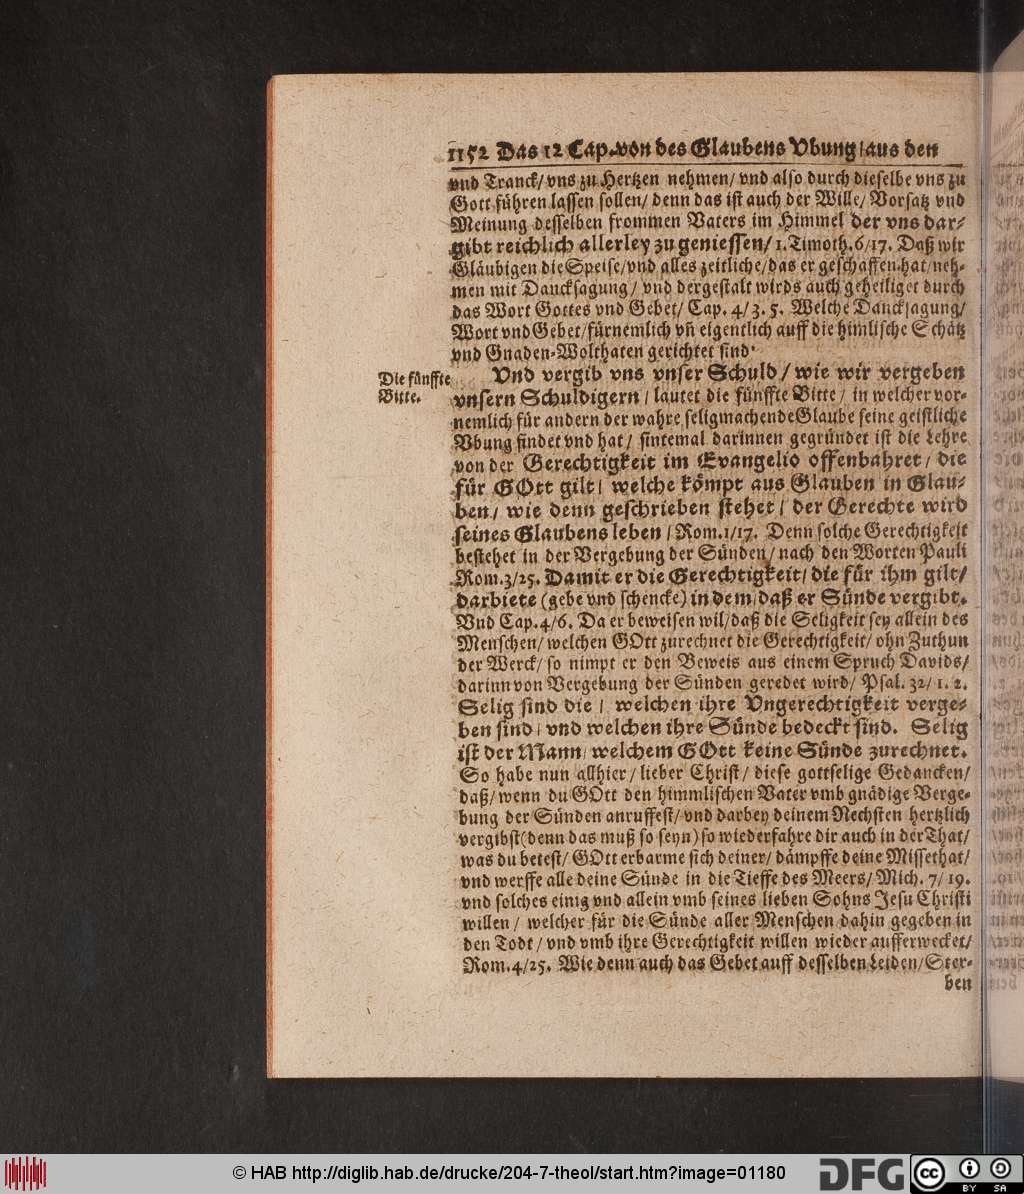 1152 Das 12 Cap. von des Glaubens Vbung / aus den
vnd Tranck / vns zu Hertzen nehmen / vnd also durch dieselbe vns zu
Gott führen lassen sollen / denn das ist auch der Wille / Vorsatz vnd
Meinung desselben frommen Vaters im Himmel der vns dar-
gibt reichlich allerley zu geniessen / 1. Timoth. 6/17. Daß wir
Gläubigen die Speise / vnd alles zeitliche / das er geschaffen hat / neh-
men mit Dancksagung / vnd dergestalt wirds auch geheiliget durch
das Wort Gottes vnd Gebet / Cap. 4/3. 5. Welche Dancksagung /
Wort vnd Gebet / fürnemlich vñ eigentlich auff die himlische Schätz
vnd Gnaden-Wolthaten gerichtet sind.
Die fünffte
Bitte.
Vnd vergib vns vnser Schuld / wie wir vergeben
vnsern Schuldigern / lautet die fünffte Bitte / in welcher vor-
nemlich für andern der wahre seligmachende Glaube seine geistliche
Vbung findet vnd hat / sintemal darinnen gegründet ist die Lehre
von der Gerechtigkeit im Evangelio offenbahret / die
für GOtt gilt / welche kömpt aus Glauben in Glau-
ben / wie denn geschrieben stehet / der Gerechte wird
seines Glaubens leben / Rom. 1/17. Denn solche Gerechtigkeit
bestehet in der Vergebung der Sünden / nach den Worten Pauli
Rom. 3/25. Damit er die Gerechtigkeit / die für ihm gilt /
darbiete (gebe vnd schencke) in dem / daß er Sünde vergibt.
Vnd Cap. 4/6. Da er beweisen wil / daß die Seligkeit sey allein des
Menschen / welchen GOtt zurechnet die Gerechtigkeit / ohn Zuthun
der Werck / so nimpt er den Beweis aus einem Spruch Davids /
darinn von Vergebung der Sünden geredet wird / Psal. 32/1. 2.
Selig sind die / welchen ihre Vngerechtigkeit verge-
ben sind / vnd welchen ihre Sünde bedeckt sind. Selig
ist der Mann / welchem GOtt keine Sünde zurechnet.
So habe nun allhier / lieber Christ / diese gottselige Gedancken /
daß / wenn du GOtt den himmlischen Vater vmb gnädige Verge-
bung der Sünden anruffest / vnd darbey deinem Nechsten hertzlich
vergibst (denn das muß so seyn) so wiederfahre dir auch in der That /
was du betest / GOtt erbarme sich deiner / dämpffe deine Missethat /
vnd werffe alle deine Sünde in die Tieffe des Meers / Mich. 7/19.
vnd solches einig vnd allein vmb seines lieben Sohns Jesu Christi
willen / welcher für die Sünde aller Menschen dahin gegeben in
den Todt / vnd vmb ihre Gerechtigkeit willen wieder aufferwecket /
Rom. 4/25. Wie denn auch das Gebet auff desselben Leiden / Ster-
ben
© HAB http://diglib.hab.de/drucke/204-7-theol/start.htm?image=01180
DFG
cc BY SA